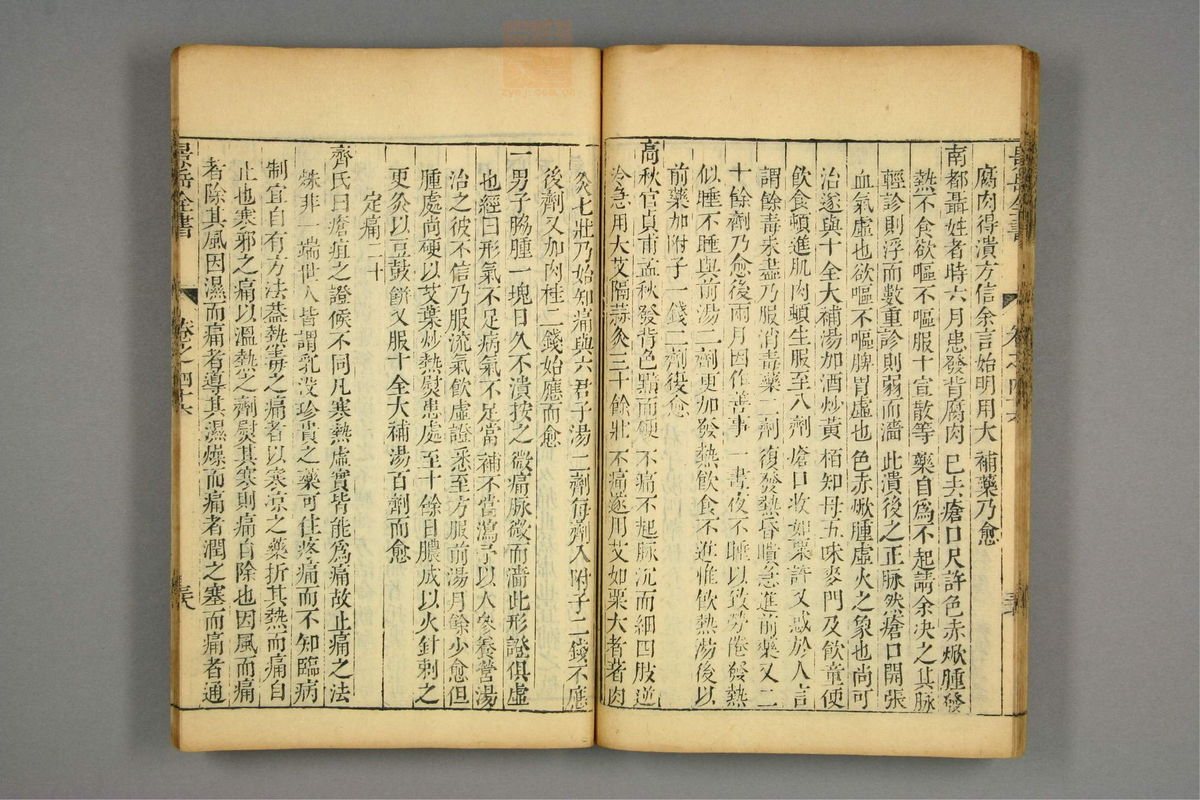 腐肉得潰方信余言始明用大補藥乃愈
南都聶姓者時六月患發背腐肉已去瘡口尺許色赤焮腫發
熱不食欲嘔不嘔服十宣散等藥自為不起請余決之其脉
輕診則浮而數重診則弱而濇此潰後之正脉然瘡口開張
血氣虛也欲嘔不嘔脾胃虛也色赤焮腫虛火之象也尚可
治遂與十全大補湯加酒炒黃栢知母五味麥門及飲童便
飲食頓進肌肉頓生服至八劑瘡口收如粟許又惑於人言
謂餘毒未盡乃服消毒藥二劑復發熱昏瞶急進前藥又二
十餘劑乃愈後兩月因作善事一晝夜不睡以致勞倦發熱
似睡不睡與前湯二劑更加發熱飲食不進惟飲熱湯後以
前藥加附子一錢二劑復愈
高秋官貞甫孟秋發背色黯而硬不痛不起脉沉而細四肢逆
冷急用大艾隔蒜灸三十餘壯不痛遂用艾如栗大者著肉
灸七壯乃始知痛與六君子湯二劑每劑入附子二錢不應
後劑又加肉桂二錢始應而愈
一男子脇腫一塊日久不潰按之微痛脉微而濇此形證俱虛
也經曰形氣不足病氣不足當補不當瀉予以人參養營湯
治之彼不信乃服流氣飲虛證悉至方服前湯月餘少愈但
腫處尚硬以艾葉炒熱熨患處至十餘日膿成以火針刺之
更灸以豆豉餅又服十全大補湯百劑而愈
定痛二十
齊氏曰瘡疽之證候不同凡寒熱虛實皆能為痛故止痛之法
殊非一端世人皆謂乳没珍貴之藥可住疼痛而不知臨病
制宜自有方法葢熱毒之痛者以寒凉之藥折其熱而痛自
止也寒邪之痛以溫熱之劑熨其寒則痛自除也因風而痛
者除其風因濕而痛者導其濕燥而痛者潤之塞而痛者通
景岳全書
卷之四十六